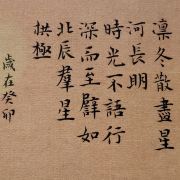 凛冬散盡星
河長明
時光不語行
深而至譬如
北辰羣星
拱極
歲在癸卯